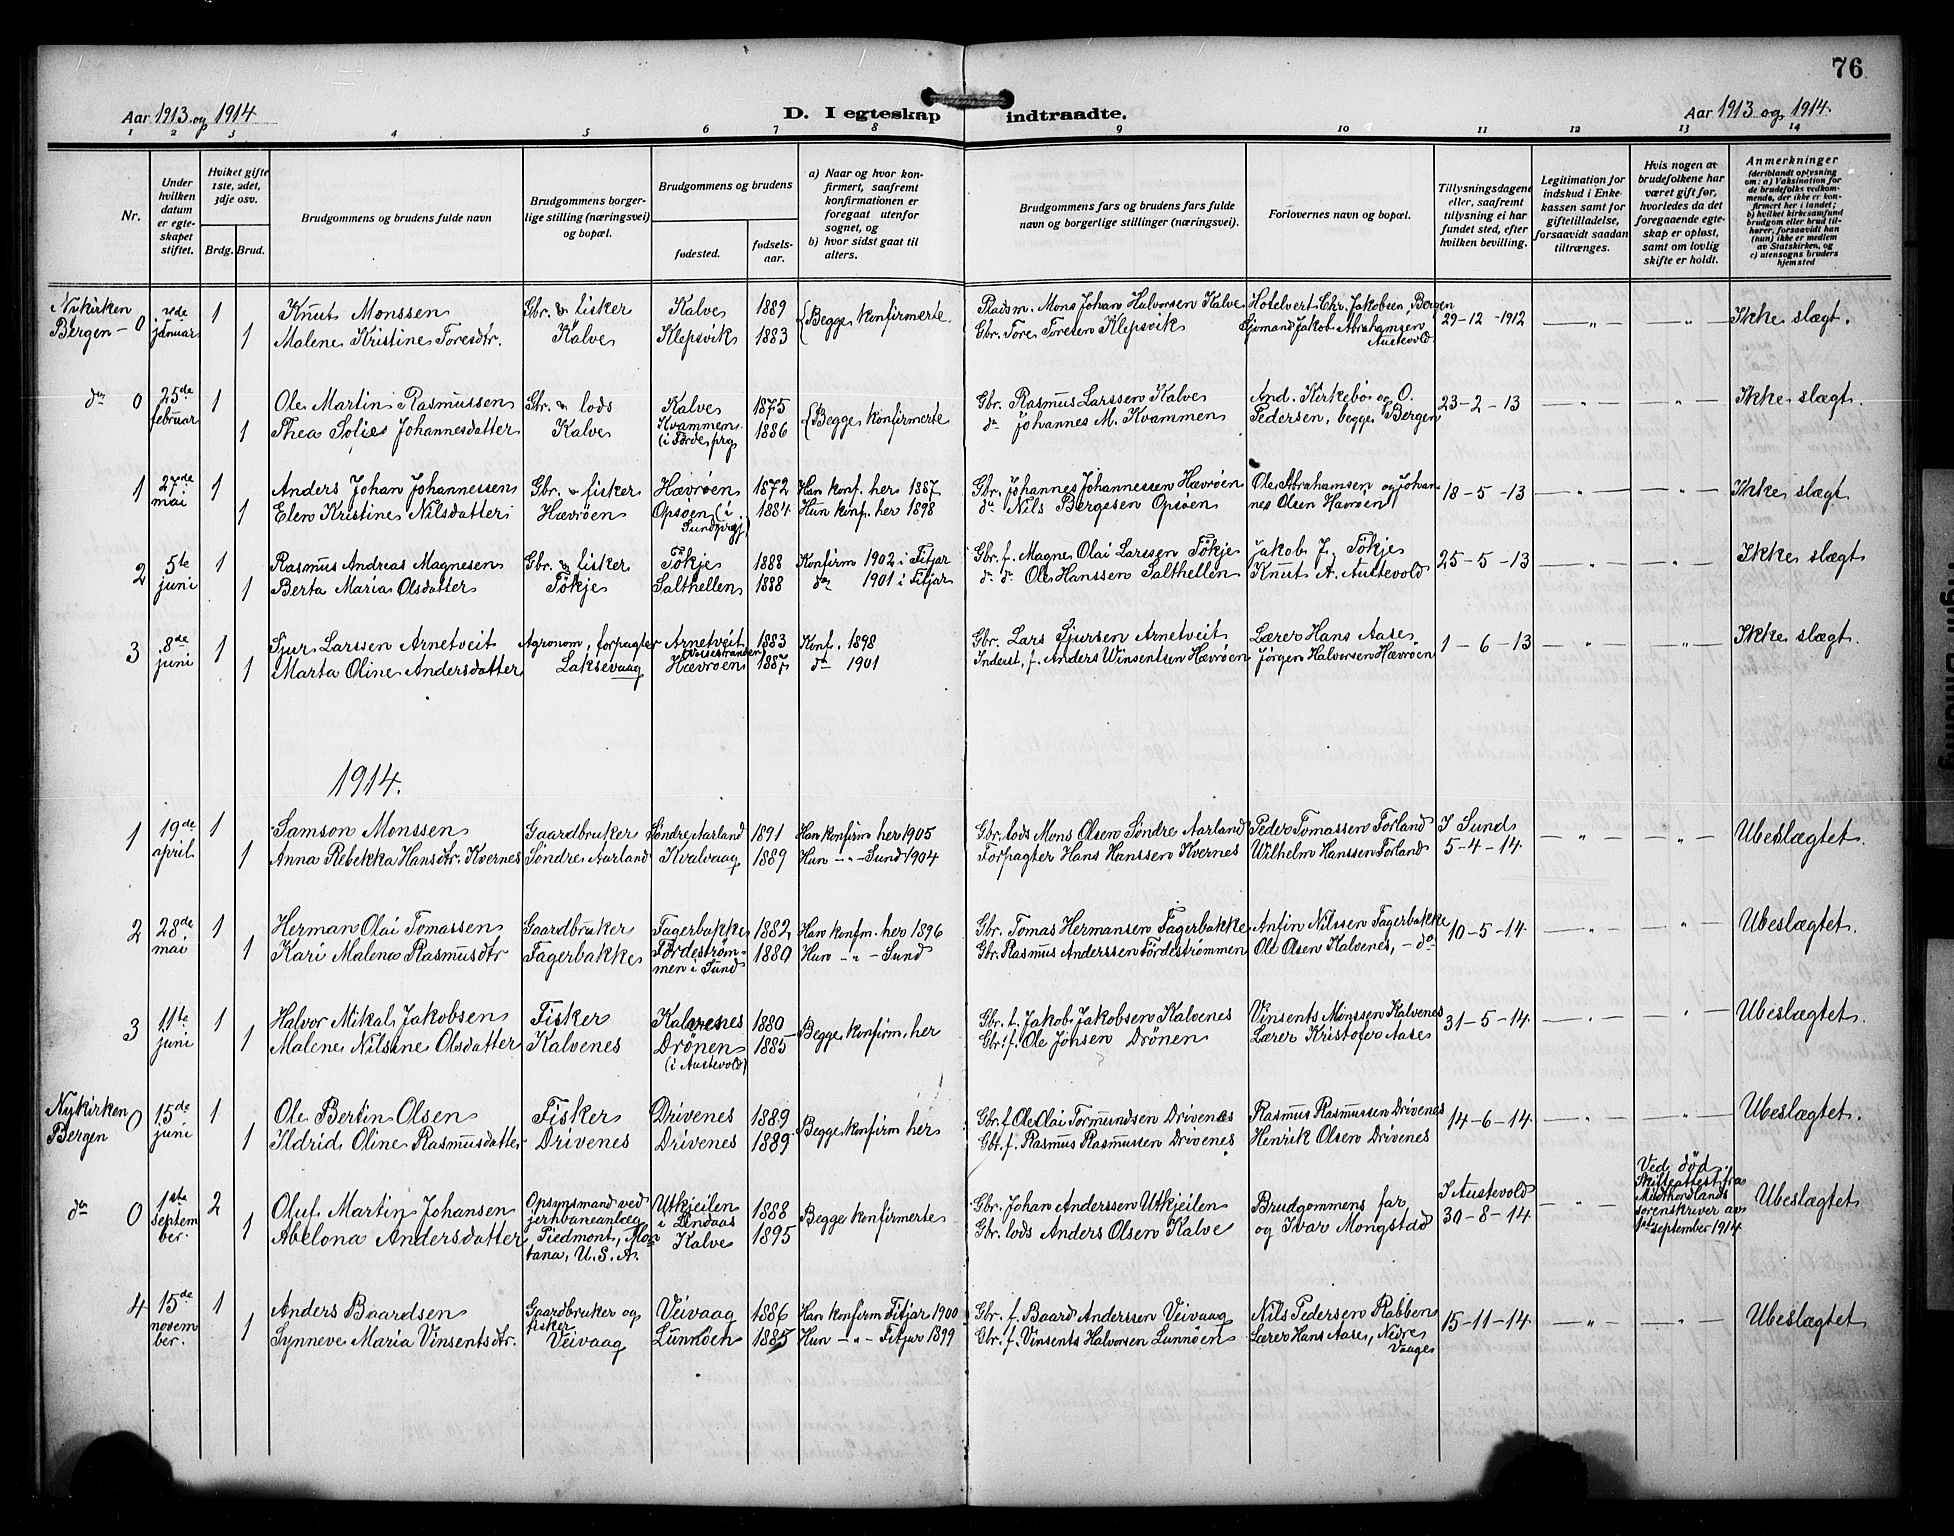 76
Aar 1913 og 1914
D. I egteskap indtraadte.
Aar 1913 og 1914.
1 2 3 4 5 6 7 8 9 10 11 12 13 14
Nr.
Under hvilken datum er egteskapet stiftet.
Hviket gifte 1ste, 2det, 3dje osv.
Brdg. Brud.
Brudgommens og brudens fulde navn
Brudgommens borgerlige stilling (næringsvei) og bopæl.
Brudgommens og brudens
fødested. fødselsaar.
a) Naar og hvor konfirmert, saafremt konfirmationen er foregaat utenfor sognet, og
b) hvor sidst gaat til alters.
Brudgommens fars og brudens fars fulde navn og borgerlige stillinger (næringsvei).
Forlovernes navn og bopæl.
Tillysningsdagene eller, saafremt tillysning ei har fundet sted, efter hvilken bevilling.
Legitimation for indskud i Enkekassen samt for giftetilladelse, forsaavidt saadan tiltrænges.
Hvis nogen av brudefolkene har været gift før, hvorledes da det foregaaende egteskap er opløst, samt om lovlig skifte er holdt.
Anmerkninger
(deriblandt oplysning om: a) Vaksination for de brudefolks vedkommende, der ikke er konfirmert her i landet;
b) hvilket kirkesamfund brudgom eller brud tilhører, forsaavidt han (hun) ikke er medlem av Statskirken, og
c) utensogns bruders hjemsted
Nykirken Bergen - 0 2den januar 1 Knut Monssen Gbr. & fisker Kalve 1889 Begge konfirmerte Pladsm. Mons Johan Halvorsen Kalve Hotelvert Chr. Jakobsen, Bergen 29-12-1912 — " — — " — Ikke slægt.
1 Malene Kristine Toresdtr. Kalve Klepsvik 1883 Gbr. Tore Toresen Klepsvik Sjømand Jakob Abrahamsen Austevold
do 0 25de februar 1 Ole Martin Rasmussen Gbr. & lods Kalve 1875 Begge konfirmerte Gbr. Rasmus Larssen Kalve And. Kirkebø og O. 23-2-13 — " — — " — Ikke slægt.
1 Thea Sofie Johannesdatter Kalve Kvammen (i Førde prg 1886 do Johannes M. Kvammen Pedersen, begge Bergen
1 27de mai 1 Anders Johan Johannessen Gbr. & fisker Hævrøen 1872 Han konf. her 1887 Gbr. Johannes Johannessen Hævrøen Ole Abrahamsen og Johan- 18-5-13 — " — — " — Ikke slægt
1 Elen Kristine Nilsdatter Hævrøen Opsøen (i Sund prgj) 1884 Hun konf. her 1898 do Nils Bergesen Opsøen nes Olsen Hævrøen
2 5te juni 1 Rasmus Andreas Magnesen Gbr. & fisker Tøkje 1888 Konfirm 1902 i Fitjar Gbr. f. Magne Olai Larssen Tøkje Jakob J. Tøkje 25-5-13 — " — — " — Ikke slægt
1 Berta Maria Olsdatter Tøkje Salthellen 1888 do 1901 i Fitjar do do Ole Hanssen Salthellen Knut A. Austevold
3 8de juni 1 Sjur Larssen Arnetveit Agronom, forpagter Arnetveit 1883 Konf. 1898 Gbr. Lars Sjursen Arnetveit Lærer Hans Aase 1-6-13 — " — — " — Ikke slægt.
1 Marta Oline Andersdatter Laksevaag Hævrøen 1887 do 1901 Inderst, f. Anders Winsentsen Hævrøen Jørgen Halversen Hævrøen
1914.
1 19de april. 1 Samson Monssen Gaardbruker Søndre Aarland 1891 Han konfirm her 1905 Gbr. lods Mons Olsen Søndre Aarland Peder Tomassen Forland I Sund — " — — " — Ubeslægtet.
1 Anna Rebekka Hansdtr. Kvernes Søndre Aarland Kvalvaag 1889 Hun — " — Sund 1904 Forpagter Hans Hanssen Kvernes Wilhelm Hanssen Forland 5-4-14
2 28de mai 1 Herman Olai Tomassen Gaardbruker Fagerbakke 1882 Han konfirm. her 1896 Gbr. Tomas Hermansen Fagerbakke Anfin Nilssen Fagerbakke 10-5-14 — " — — " — Ubeslægtet.
1 Kari Malena Rasmusdtr Fagerbakke Førdestrømmen i Sund 1880 Hun — " — Sund Gbr. Rasmus Anderssen Førdestrømmen Ole Olsen Kalvenes, - do
3 11te juni 1 Halvor Mikal Jakobsen Fisker Kalvenes 1880 Begge konfirm. her Gbr. f. Jakob Jakobsen Kalvenes Vinsents Monssen Kalvenes 31-5-14 — " — — " — Ubeslægtet.
1 Malene Nilsine Olsdatter Kalvenes Drønen (i Austevold) 1885 Gbr. f. Ole Jonsen Drønen Lærer Kristofer Aase
Nykirken Bergen 0 15de juni 1 Ole Bertin Olsen Fisker Drivenes 1889 Begge konfirm her Gbr. f Ole Olai Tormundsen Drivenes Rasmus Rasmussen Drivenes 14-6-14 — " — — " — Ubeslægtet.
1 Ildrid Oline Rasmusdatter Drivenes Drivenes 1889 Gbr. f. Rasmus Rasmussen Drivenes Henrik Olsen Drivenes
do 0 1ste september. 2 Oluf Martin Johansen Opsynsmand ved jernbaneanlæg Utkjeilen i Lindaas 1888 Begge konfirmerte Gbr. Johan Anderssen Utkjeilen Brudgommens far I Austevold — " — Ved død. Skifteattest fra Midthordlands sorenskriver av 1ste september 1914 Ubeslægtet
1 Abelona Andersdatter Piedmont, Montana, U.S.A. Kalve 1895 Gbr. lods Anders Olsen Kalve og Ivar Mongstad 30-8-14
4 15de november. 1 Anders Baardsen Gaardbruker og fisker Veivaag 1886 Han konfirm Fitjar 1900 Gbr. f. Baard Anderssen Veivaag Nils Pedersen Rabben 15-11-14 — " — — " — Ubeslægtet
1 Synneve Maria Vinsentsdtr. Veivaag Lunnøen 1885 Hun — " — Fitjar 1899 Gbr. f. Vinsents Halvorsen Lunnøen Lærer Hans Aase, Nedre Vaage